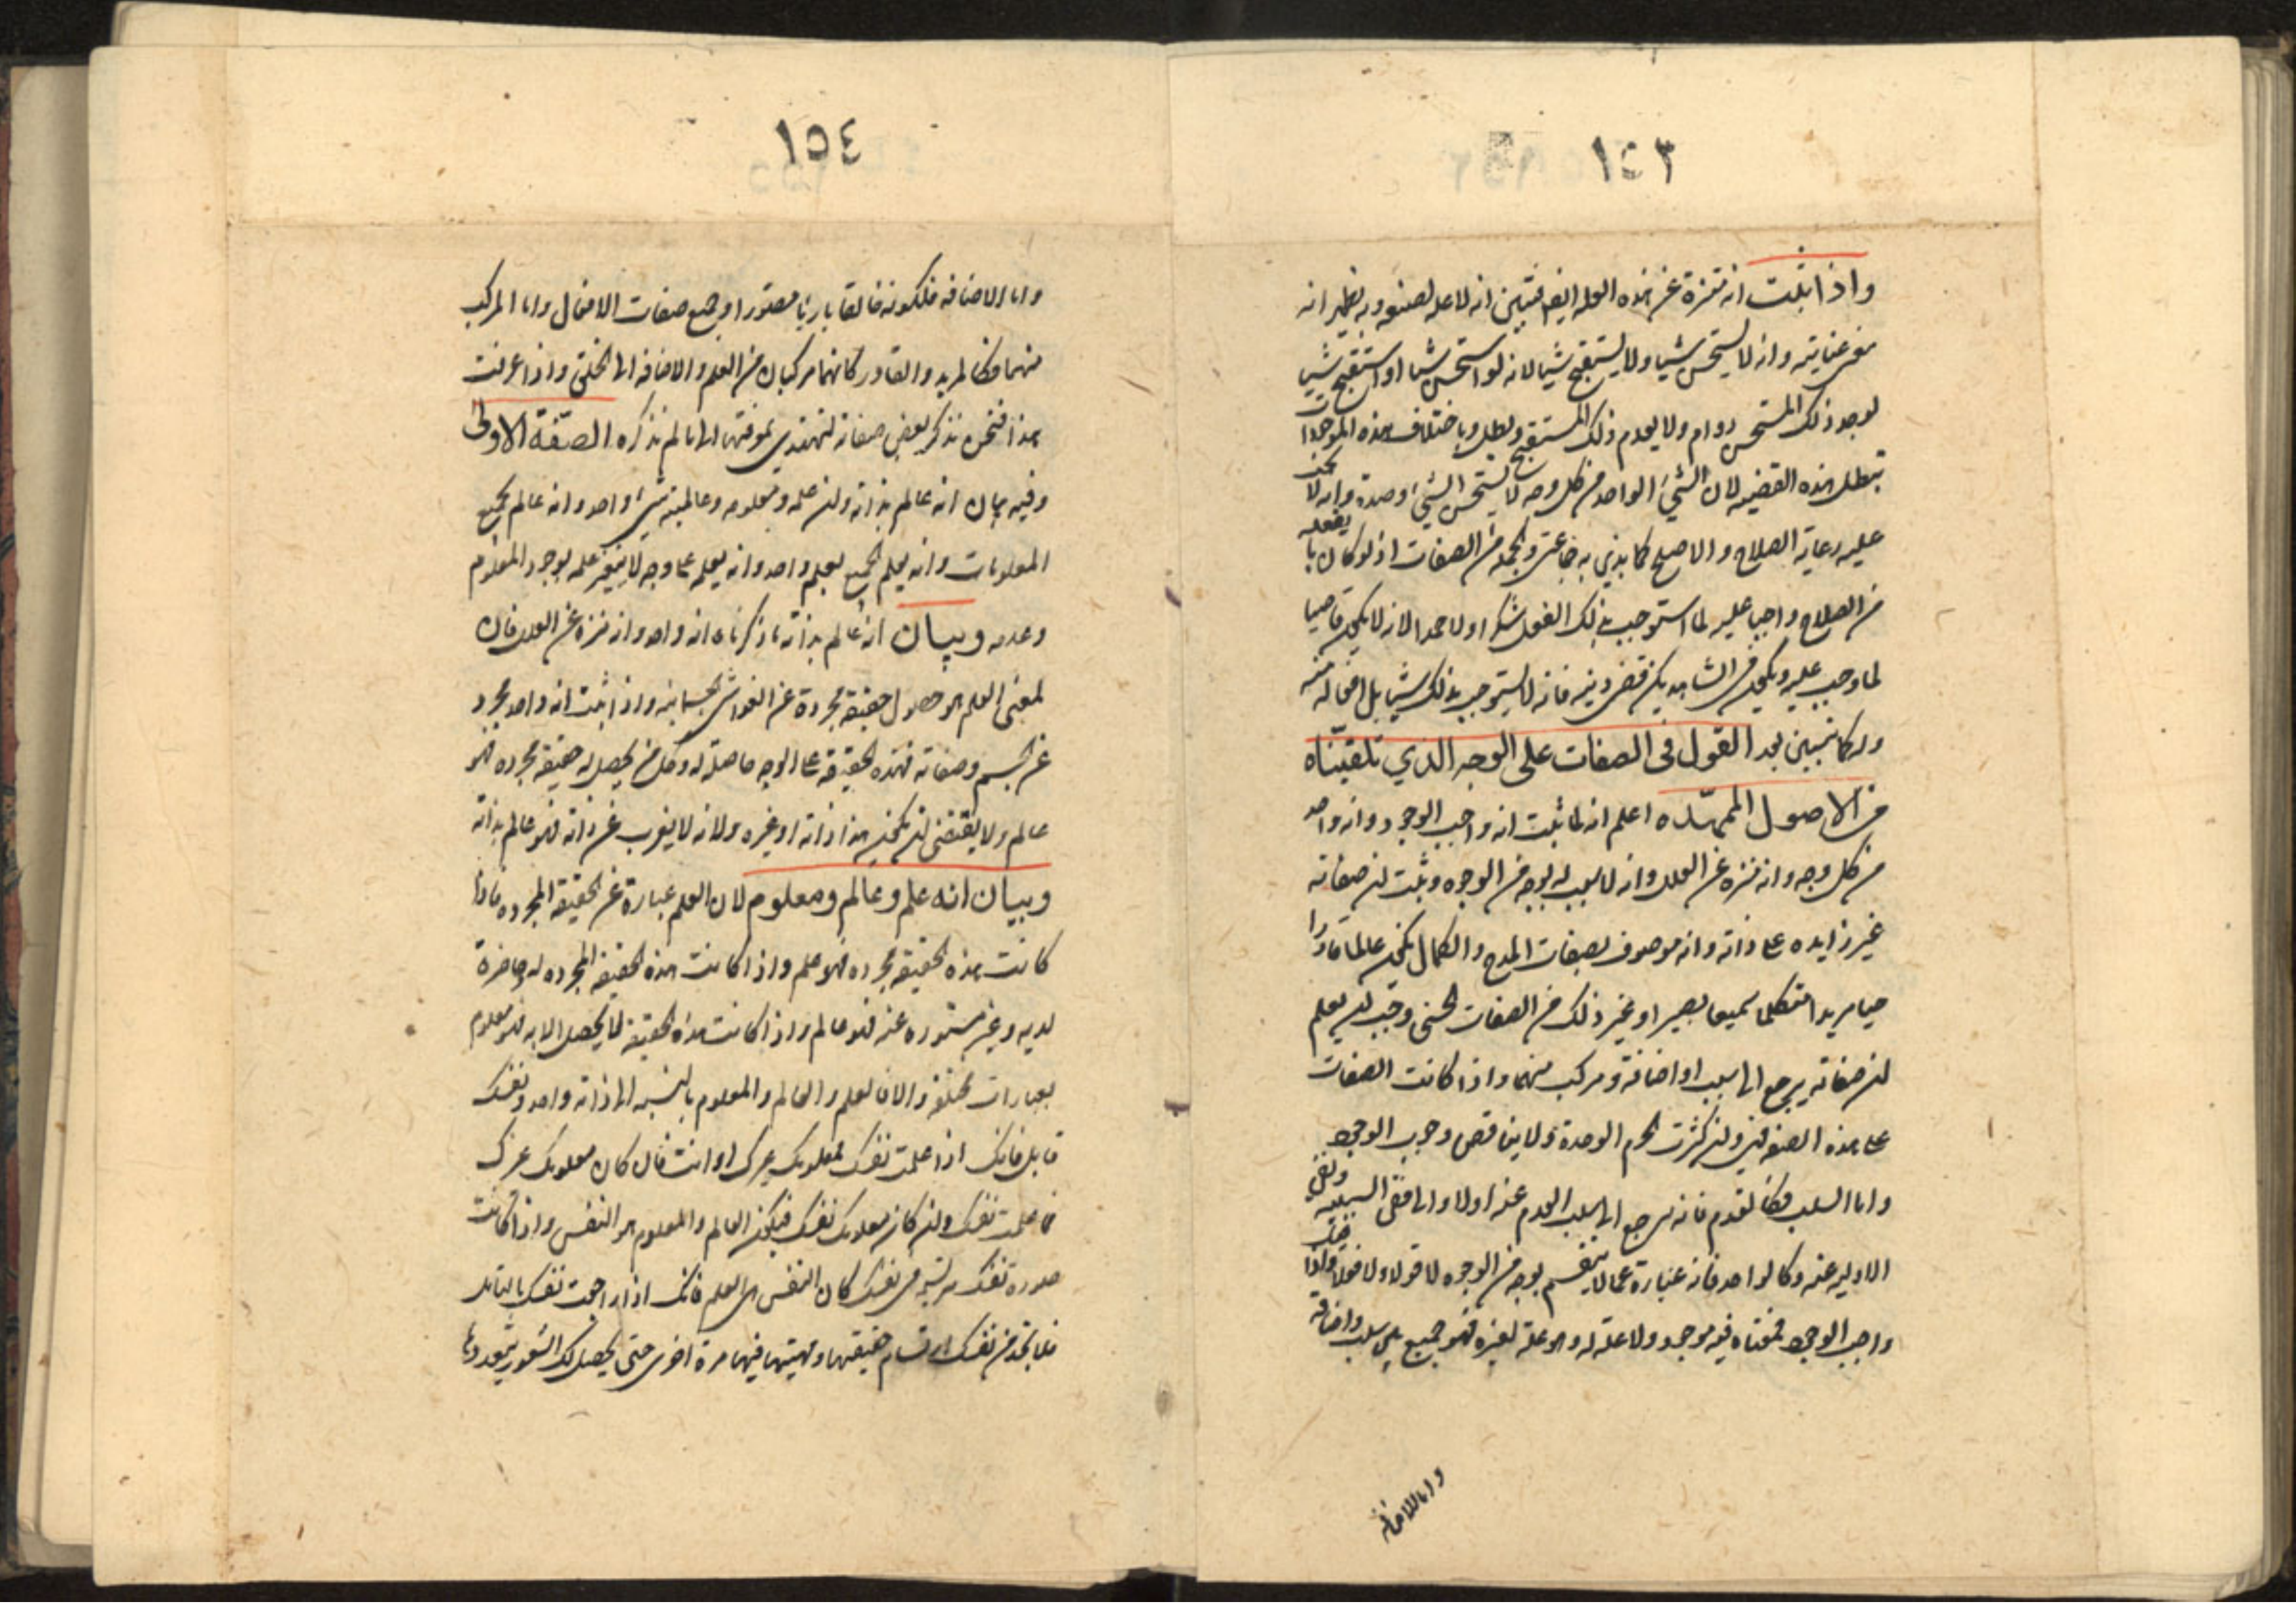 ١٥٣
واذا ثبت انه منزه عن هذه العلة ايضا فتبين انه لا علة لصنعه وبه يظهر انه
معنى عنايته وانه لا يستحسن شيا ولا يستقبح شيا لانه لو استحسن شيا او استقبح شيا
لوجد ذلك المستحسن دوام ولا يعدم ذلك المستقبح وبطل وباختلاف هذه الموجودات
تبطل هذه القضيه لان الشيء الواحد من كل وجه لا يستحسن الشيء وضده وانه لا يجب
عليه رعاية الصلاح والاصلح كما يهذي به جماعة من الصفات اذ لو كان ما يفعله
من الصلاح واجبا عليه لما استوجب بذلك الفعل شكرا ولا حمدا لانه لا يكون قاضيا
لما وجب عليه ويكون في الشاهد كمن قضى دينه فانه لا يستوجب بذلك شيا بل افعاله منه
وله كما نبين بعد القول في الصفات على الوجه الذي تلقيناه
من الاصول الممهده اعلم انه لما ثبت انه واجب الوجود وانه واحد
من كل وجه وانه منزه عن العلل وانه لا سبب له بوجه من الوجوه وثبت ان صفاته
غير زايده على ذاته وانه موصوف بصفات المدح والكمال يكون عالما قادرا
حيا مريدا متكلما سميعا بصيرا وغير ذلك من الصفات الحسنى وجب ان يعلم
ان صفاته يرجع الى سلب او اضافة ومركب منهما واذا كانت الصفات
على هذه الصفه فهي وان كثرت لا تخرم الوحدة ولا يناقض وجوب الوجود
واما السلب فكالقدم فانه يرجع الى سلب العدم عنه اولا والى نفى السببيه ونفى
الاوليه عنه وكالواحد فانه عبارة عما لا ينقسم بوجه من الوجوه لا قولا ولا فعلا واذا قيل
واجب الوجود فمعناه فيه موجود ولا علة له وهو علة لغيره فهو جمع بين سلب واضافة
واما الاضافه
١٥٤
واما الاضافه فلكونه خالقا باريا مصورا وجميع صفات الافعال واما المركب
منهما فكالمريد والقادر كانهما مركبان من العلم والاضافه الى الخلق واذا عرفت
هذا فنحن نذكر بعض صفاته لتهتدي بمعرفتها الى ما لم نذكره الصفة الاولى
وفيه بيان انه عالم بذاته وان علمه ومعلومه وعالميته شيء واحد وانه عالم بجميع
المعلومات وانه يعلم الجميع بعلم واحد وانه يعلمه على وجه لا يتغير علمه بوجود المعلوم
وعدمه وبيان انه عالم بذاته ما ذكرناه انه واحد وانه منزه عن العلل فان
معنى العلم هو حصول حقيقة مجردة عن الغواشي الجسمانيه واذا ثبت انه واحد مجرد
عن الجسم وصفاته فهذه الحقيقه على الوجه حاصلة له وكل من يحصل له حقيقه مجرده فهو
عالم ولا يقتضى ان يكون هذا ذاته او غيره ولانه لا يغرب عن ذاته فهو عالم بذاته
وبيان انه علم وعالم ومعلوم لان العلم عبارة عن الحقيقه المجرده فاذا
كانت هذه الحقيقه مجرده فهو علم واذا كانت هذه الحقيقه المجرده له وحاضرة
لديه وغير مستوره عنه فهو عالم واذا كانت هذه الحقيقة لا يحصل الا به فهو معلوم
بعبارات مختلفه والا فالعلم والعالم والمعلوم بالنسبه الى ذاته واحد ونفسك
قابل فانك اذا علمت نفسك فمعلومك غيرك او انت فان كان معلومك غيرك
فما علمت نفسك وان كان معلومك نفسك فيكون العالم والمعلوم هو النفس واذا كانت
صورة نفسك مرتسمه في نفسك كان النفس هى العلم فانك اذا راجعت نفسك بالتامل
فلا تجد من نفسك ارتسام حقيقتها ومهيتها فيها مرة اخرى حتى يحصل لك الشعور بتعددها